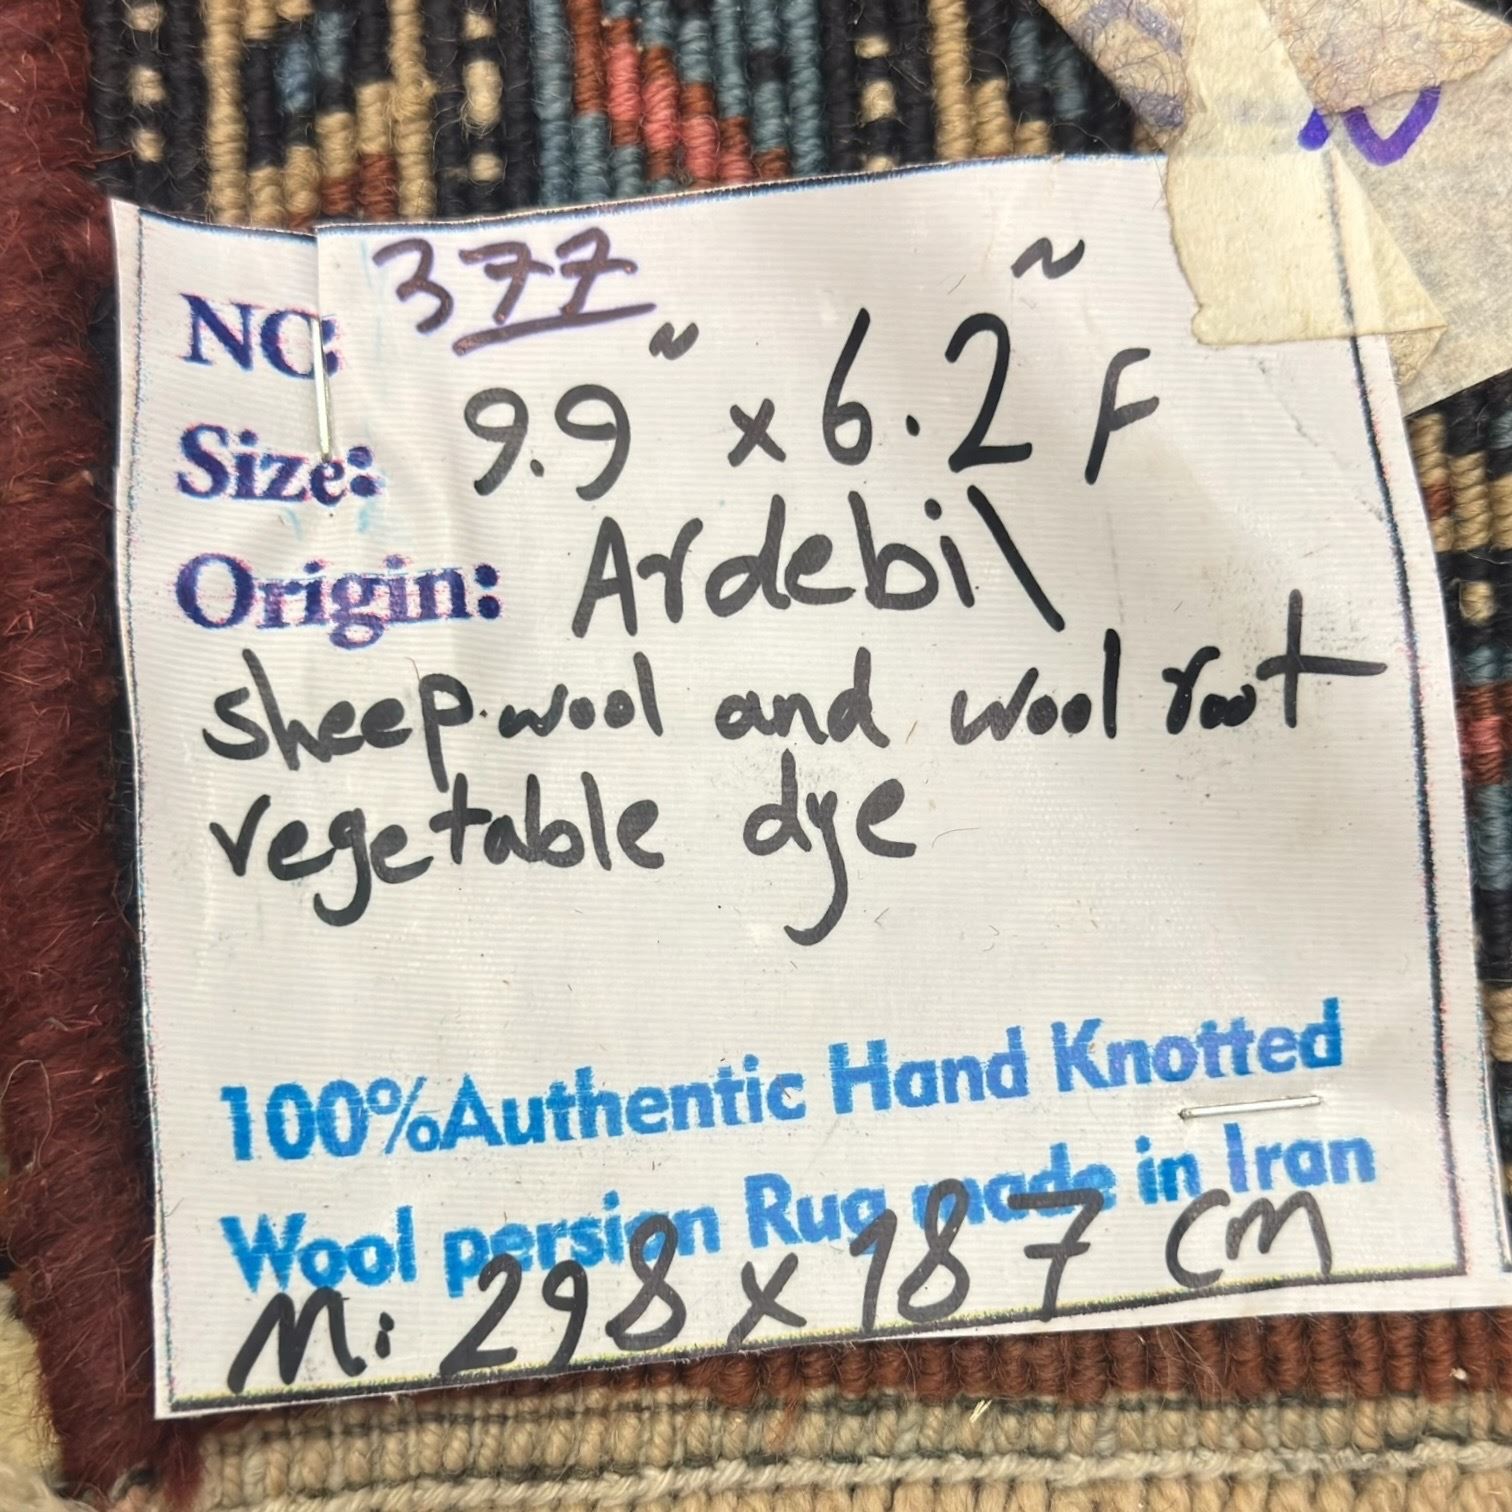 NO: 377
Size: 9.9" x 6.2" F
Origin: Ardebil
sheep wool and wool root
vegetable dye
100%Authentic Hand Knotted
Wool persian Rug made in Iran
M: 298 x 187 cm